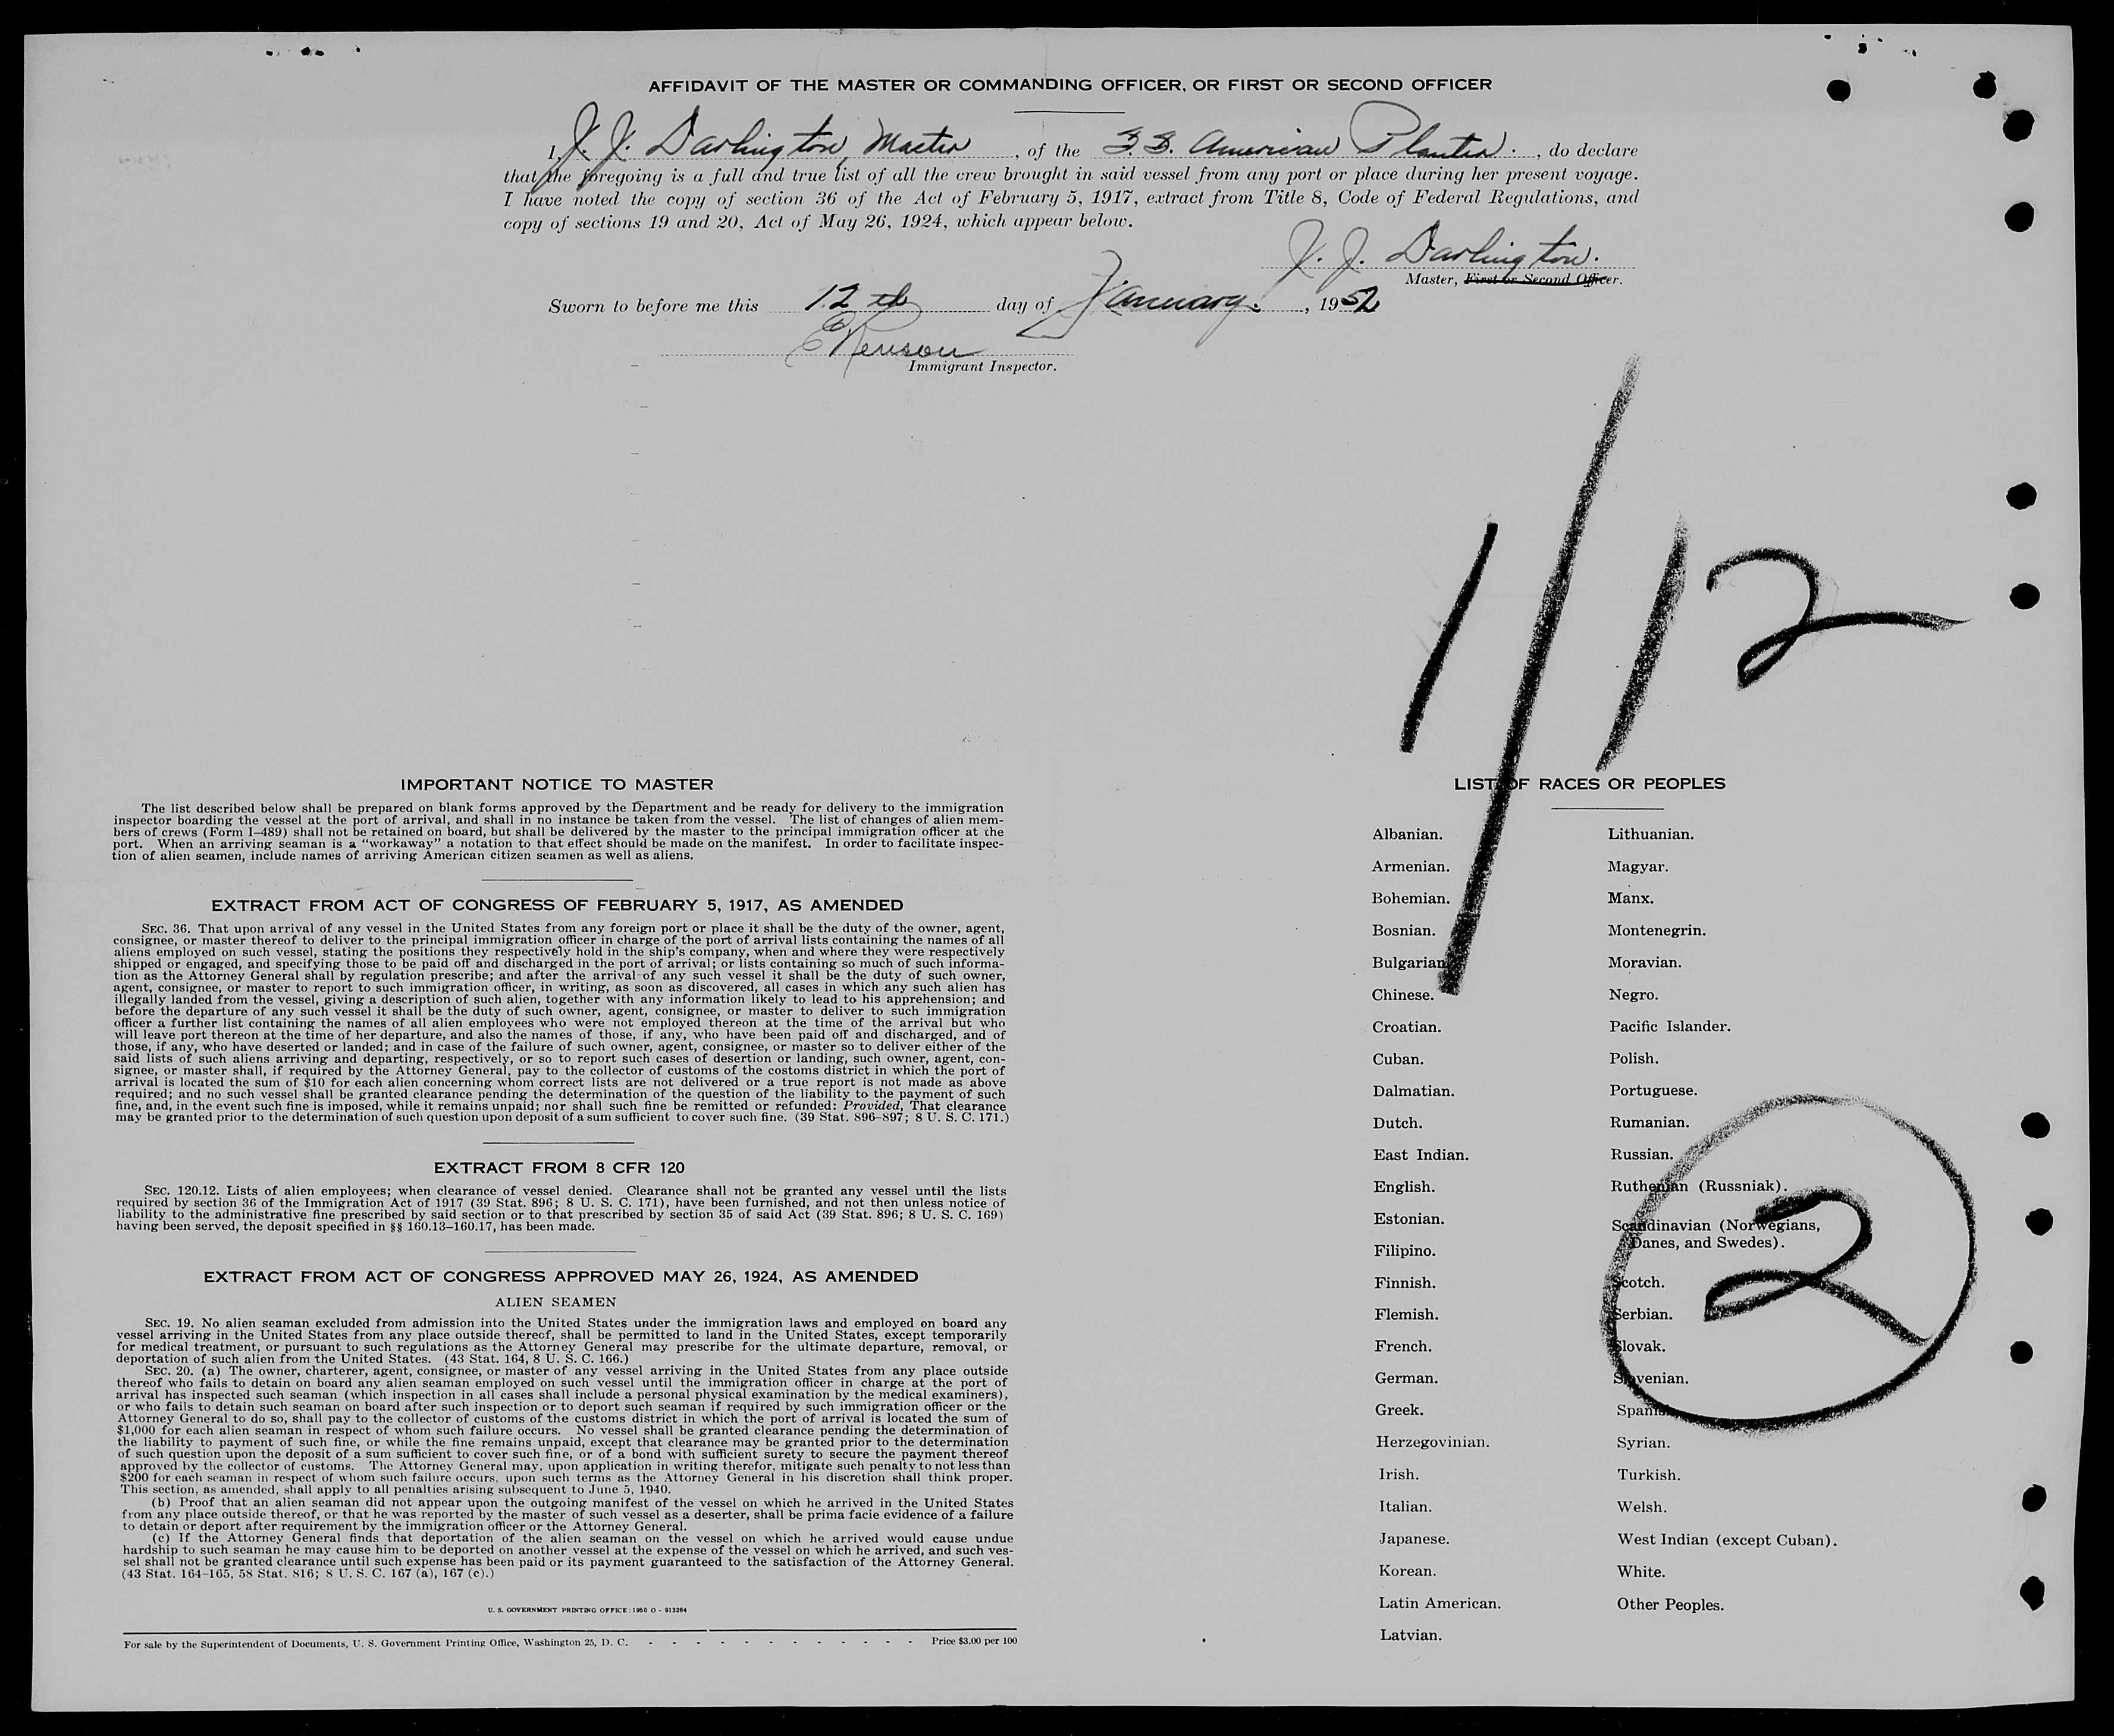 AFFIDAVIT OF THE MASTER OR COMMANDING OFFICER, OR FIRST OR SECOND OFFICER
I, J. J. Darlington, Master, of the S.S. American Planter., do declare
that the foregoing is a full and true list of all the crew brought in said vessel from any port or place during her present voyage.
I have noted the copy of section 36 of the Act of February 5, 1917, extract from Title 8, Code of Federal Regulations, and
copy of sections 19 and 20, Act of May 26, 1924, which appear below.
J. J. Darlington.
Master, First or Second Officer.
Sworn to before me this 12th day of January, 1952
Immigrant Inspector.
1/12
IMPORTANT NOTICE TO MASTER
The list described below shall be prepared on blank forms approved by the Department and be ready for delivery to the immigration
inspector boarding the vessel at the port of arrival, and shall in no instance be taken from the vessel. The list of changes of alien mem-
bers of crews (Form I-489) shall not be retained on board, but shall be delivered by the master to the principal immigration officer at the
port. When an arriving seaman is a "workaway" a notation to that effect should be made on the manifest. In order to facilitate inspec-
tion of alien seamen, include names of arriving American citizen seamen as well as aliens.
EXTRACT FROM ACT OF CONGRESS OF FEBRUARY 5, 1917, AS AMENDED
SEC. 36. That upon arrival of any vessel in the United States from any foreign port or place it shall be the duty of the owner, agent,
consignee, or master thereof to deliver to the principal immigration officer in charge of the port of arrival lists containing the names of all
aliens employed on such vessel, stating the positions they respectively hold in the ship's company, when and where they were respectively
shipped or engaged, and specifying those to be paid off and discharged in the port of arrival; or lists containing so much of such informa-
tion as the Attorney General shall by regulation prescribe; and after the arrival of any such vessel it shall be the duty of such owner,
agent, consignee, or master to report to such immigration officer, in writing, as soon as discovered, all cases in which any such alien has
illegally landed from the vessel, giving a description of such alien, together with any information likely to lead to his apprehension; and
before the departure of any such vessel it shall be the duty of such owner, agent, consignee, or master to deliver to such immigration
officer a further list containing the names of all alien employees who were not employed thereon at the time of the arrival but who
will leave port thereon at the time of her departure, and also the names of those, if any, who have been paid off and discharged, and of
those, if any, who have deserted or landed; and in case of the failure of such owner, agent, consignee, or master so to deliver either of the
said lists of such aliens arriving and departing, respectively, or so to report such cases of desertion or landing, such owner, agent, con-
signee, or master shall, if required by the Attorney General, pay to the collector of customs of the costoms district in which the port of
arrival is located the sum of $10 for each alien concerning whom correct lists are not delivered or a true report is not made as above
required; and no such vessel shall be granted clearance pending the determination of the question of the liability to the payment of such
fine, and, in the event such fine is imposed, while it remains unpaid; nor shall such fine be remitted or refunded: Provided, That clearance
may be granted prior to the determination of such question upon deposit of a sum sufficient to cover such fine. (39 Stat. 896-897; 8 U. S. C. 171.)
EXTRACT FROM 8 CFR 120
SEC. 120.12. Lists of alien employees; when clearance of vessel denied. Clearance shall not be granted any vessel until the lists
required by section 36 of the Immigration Act of 1917 (39 Stat. 896; 8 U. S. C. 171), have been furnished, and not then unless notice of
liability to the administrative fine prescribed by said section or to that prescribed by section 35 of said Act (39 Stat. 896; 8 U. S. C. 169)
having been served, the deposit specified in §§ 160.13-160.17, has been made.
EXTRACT FROM ACT OF CONGRESS APPROVED MAY 26, 1924, AS AMENDED
ALIEN SEAMEN
SEC. 19. No alien seaman excluded from admission into the United States under the immigration laws and employed on board any
vessel arriving in the United States from any place outside thereof, shall be permitted to land in the United States, except temporarily
for medical treatment, or pursuant to such regulations as the Attorney General may prescribe for the ultimate departure, removal, or
deportation of such alien from the United States. (43 Stat. 164, 8 U. S. C. 166.)
SEC. 20. (a) The owner, charterer, agent, consignee, or master of any vessel arriving in the United States from any place outside
thereof who fails to detain on board any alien seaman employed on such vessel until the immigration officer in charge at the port of
arrival has inspected such seaman (which inspection in all cases shall include a personal physical examination by the medical examiners),
or who fails to detain such seaman on board after such inspection or to deport such seaman if required by such immigration officer or the
Attorney General to do so, shall pay to the collector of customs of the customs district in which the port of arrival is located the sum of
$1,000 for each alien seaman in respect of whom such failure occurs. No vessel shall be granted clearance pending the determination of
the liability to payment of such fine, or while the fine remains unpaid, except that clearance may be granted prior to the determination
of such question upon the deposit of a sum sufficient to cover such fine, or of a bond with sufficient surety to secure the payment thereof
approved by the collector of customs. The Attorney General may, upon application in writing therefor, mitigate such penalty to not less than
$200 for each seaman in respect of whom such failure occurs, upon such terms as the Attorney General in his discretion shall think proper.
This section, as amended, shall apply to all penalties arising subsequent to June 5, 1940.
(b) Proof that an alien seaman did not appear upon the outgoing manifest of the vessel on which he arrived in the United States
from any place outside thereof, or that he was reported by the master of such vessel as a deserter, shall be prima facie evidence of a failure
to detain or deport after requirement by the immigration officer or the Attorney General.
(c) If the Attorney General finds that deportation of the alien seaman on the vessel on which he arrived would cause undue
hardship to such seaman he may cause him to be deported on another vessel at the expense of the vessel on which he arrived, and such ves-
sel shall not be granted clearance until such expense has been paid or its payment guaranteed to the satisfaction of the Attorney General.
(43 Stat. 164-165, 58 Stat. 816; 8 U. S. C. 167 (a), 167 (c).)
U. S. GOVERNMENT PRINTING OFFICE: 1950 O - 913264
For sale by the Superintendent of Documents, U. S. Government Printing Office, Washington 25, D. C. - - - - - - - - - - - - Price $3.00 per 100
LIST OF RACES OR PEOPLES
Albanian.
Armenian.
Bohemian.
Bosnian.
Bulgarian
Chinese.
Croatian.
Cuban.
Dalmatian.
Dutch.
East Indian.
English.
Estonian.
Filipino.
Finnish.
Flemish.
French.
German.
Greek.
Herzegovinian.
Irish.
Italian.
Japanese.
Korean.
Latin American.
Latvian.
Lithuanian.
Magyar.
Manx.
Montenegrin.
Moravian.
Negro.
Pacific Islander.
Polish.
Portuguese.
Rumanian.
Russian.
Ruthenian (Russniak).
Scandinavian (Norwegians,
Danes, and Swedes).
Scotch.
Serbian.
Slovak.
Slovenian.
Spanish
Syrian.
Turkish.
Welsh.
West Indian (except Cuban).
White.
Other Peoples.
2